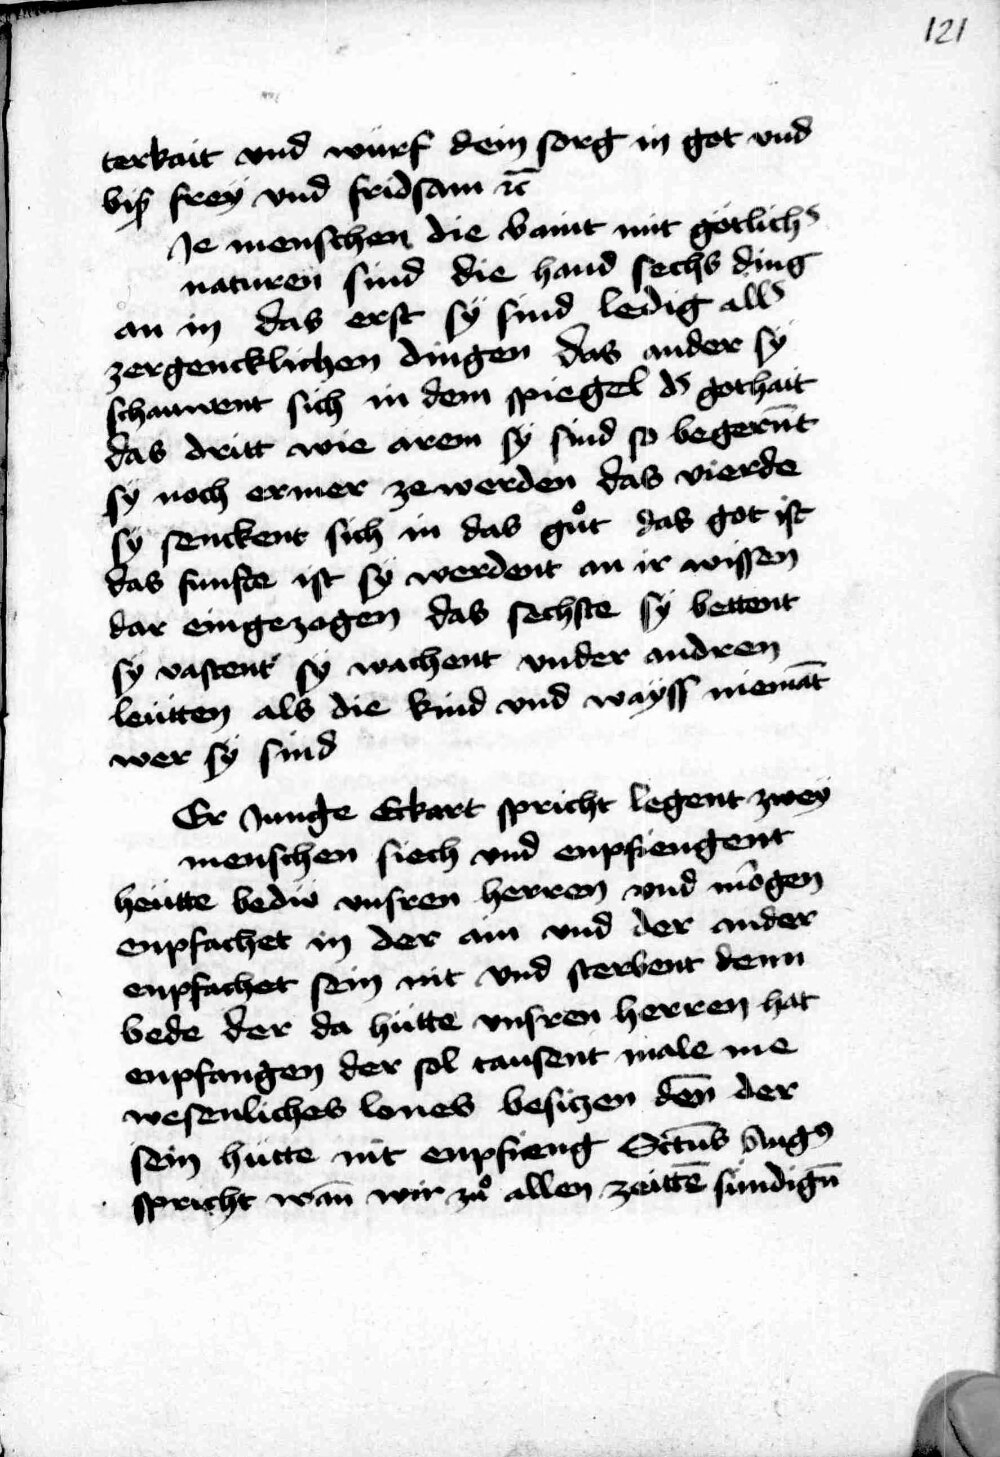 121
terkait vnd würf dein sorg in got vnd
biß frey vnd fridsam ꝛc̄
Je menschen die vaint mit götlichs
naturen sind die hand sechs ding
an in das erst sÿ sind ledig alls
zergencklichen dingen das ander sÿ
schauwent sich in dem spiegel ds gothait
das dritt wie arem sÿ sind so begerñt
sÿ noch ermer ze werden das vierde
sÿ senckent sich in das gůt das got ist
das funfte ist sÿ werdent an ir wissen
dar eingezogen das sechste sÿ bettent
sÿ vastent sÿ wachent vnder andren
leütten als die kind vnd waÿss niemāt
wer sÿ sind
Er Junge Eckart spricht legent zweÿ
menschen siech vnd enpfiengent
heütte bediv vnsren herren vnd mögen
enpfachet in der ain vnd der ander
enpfachet sein nit vnd sterbent denn
bede der da hütte vnsren herren hat
enpfangen der sol tausent male me
wesenliches lones besitzen deñ der
sein hütte nit enpfieng Sctūs Augꝰ
spricht wañ wir zů allen zeittē sündigñ